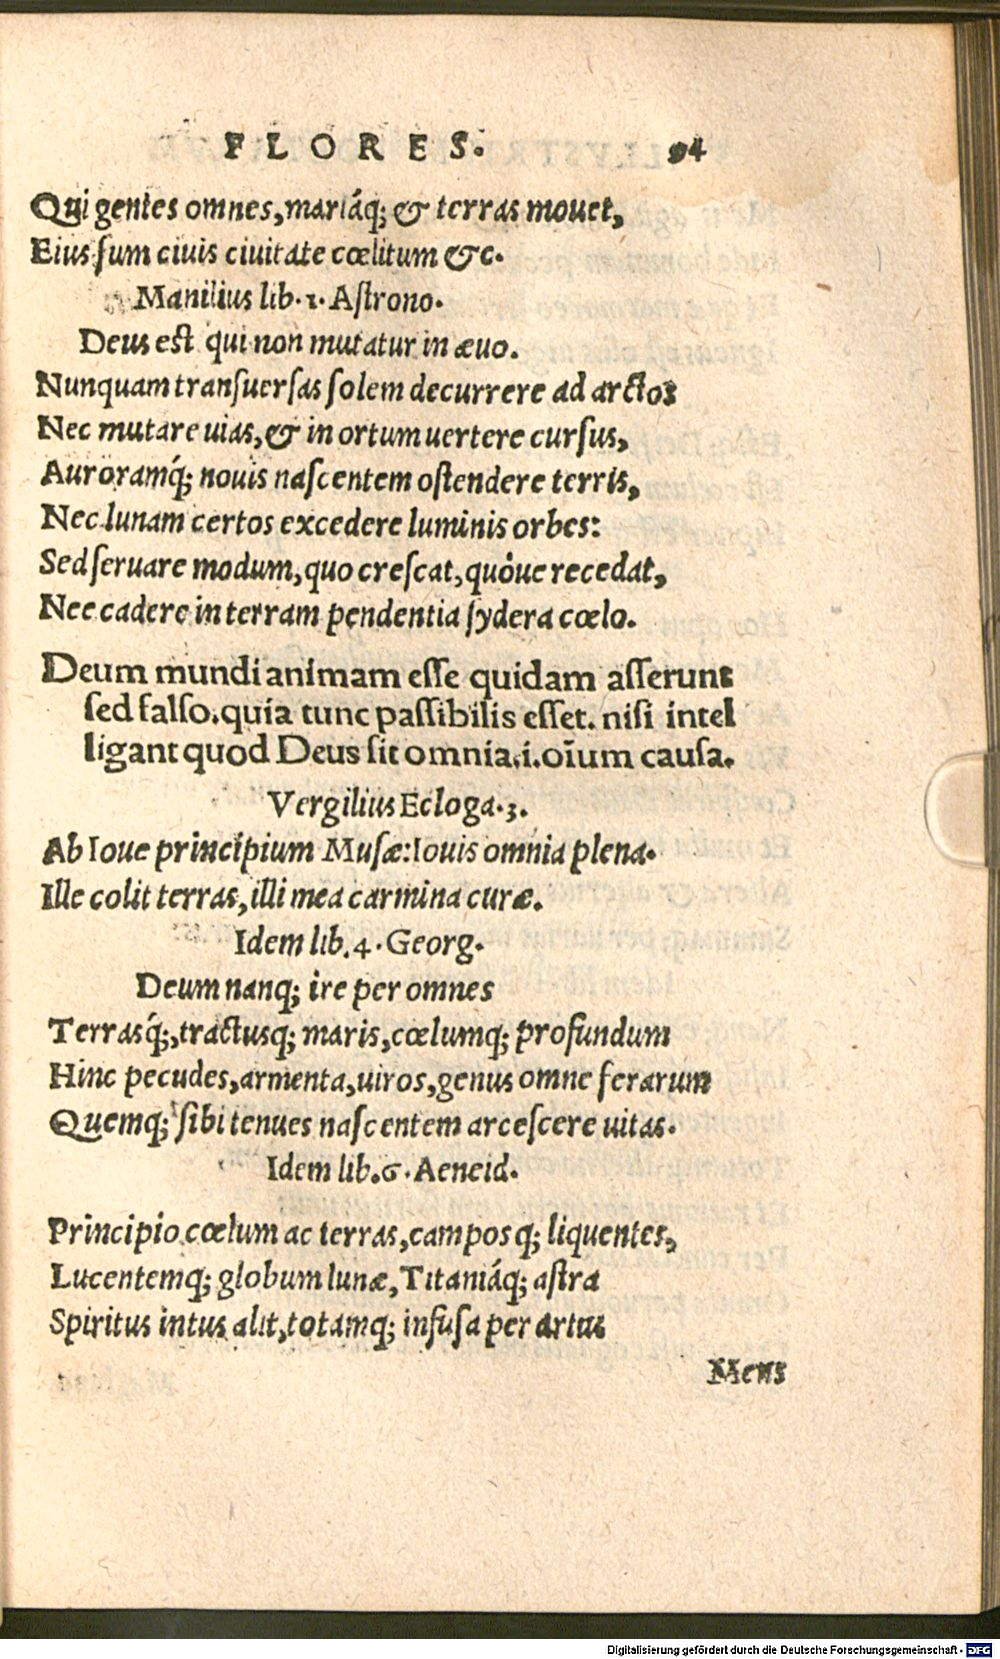 FLORES. 94
Qui gentes omnes, mariáq; & terras mouet,
Eius sum ciuis ciuitate cœlitum &c.
Manilius lib. 1. Astrono.
Deus est qui non mutatur in æuo.
Nunquam transuersas solem decurrere ad arctos
Nec mutare uias, & in ortum uertere cursus,
Auroramq́; nouis nascentem ostendere terris,
Nec lunam certos excedere luminis orbes:
Sed seruare modum, quo crescat, quóue recedat,
Nec cadere in terram pendentia sydera cœlo.
Deum mundi animam esse quidam asserunt
sed falso. quia tunc passibilis esset. nisi intel
ligant quod Deus sit omnia .i. oı̄um causa.
Vergilius Ecloga. 3.
Ab Ioue principium Musæ: Iouis omnia plena.
Ille colit terras, illi mea carmina curæ.
Idem lib. 4. Georg.
Deum nanq; ire per omnes
Terrasq́;, tractusq; maris, cœlumq; profundum
Hinc pecudes, armenta, uiros, genus omne ferarum
Quemq; sibi tenues nascentem arcescere uitas.
Idem lib. 6. Aeneid.
Principio cœlum ac terras, campos q; liquentes,
Lucentemq; globum lunæ, Titaniáq; astra
Spiritus intus alit, totamq; infusa per artus
Mens
Digitalisierung gefördert durch die Deutsche Forschungsgemeinschaft - DFG